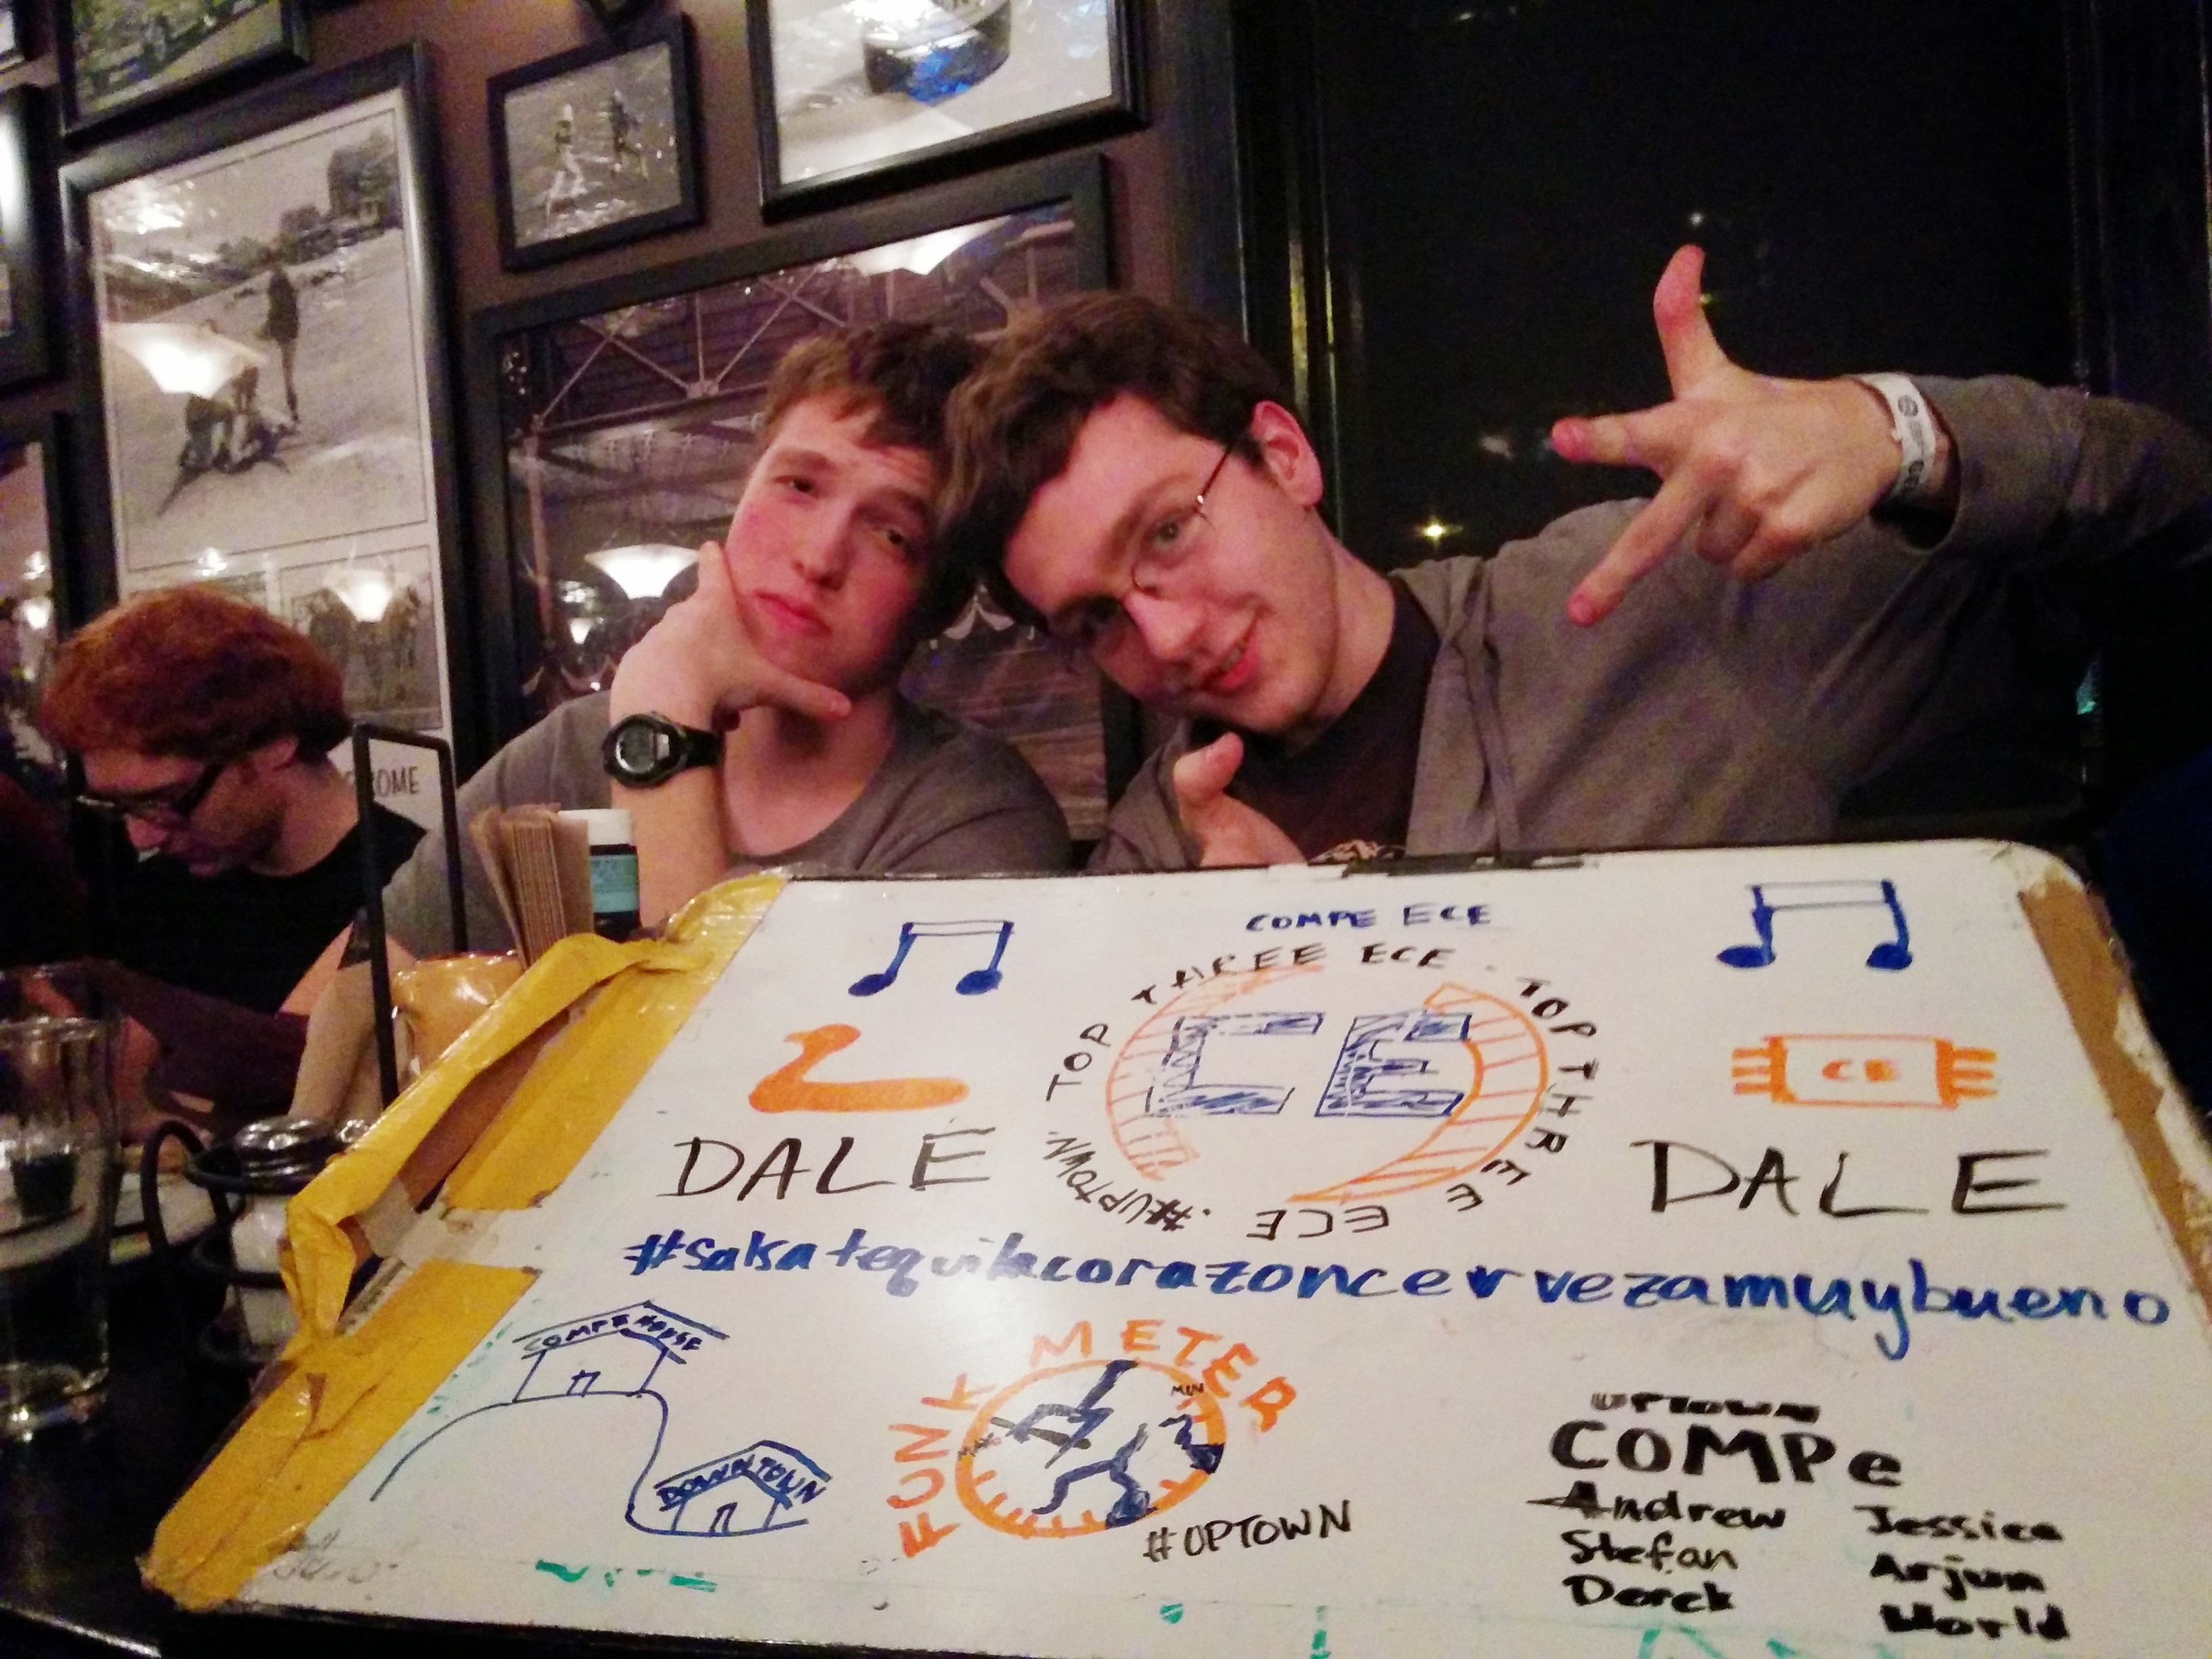 COMPE ECE
TOP THREE ECE . TOP THREE ECE . #UPTOWN.
CE
CE
DALE
DALE
#sakatequilacorazoncervezamuybueno
COMPE HOUSE
DOWNTOWN
FUNK METER
MAX
MIN
#UPTOWN
UPTOWN
COMPe
Andrew Jessica
Stefan Arjun
Derek World
OME